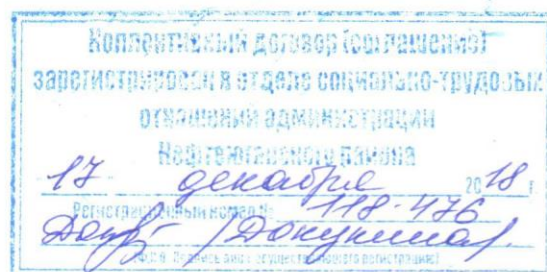 Коллективный договор (соглашение)
зарегистрирован в отделе социально-трудовых
отношений администрации
Нефтеюганского района
17 декабря 2018 г.
Регистрационный номер № 118-476
/Докукина/.
(Ф.И.О. подпись лица осуществившего регистрацию)